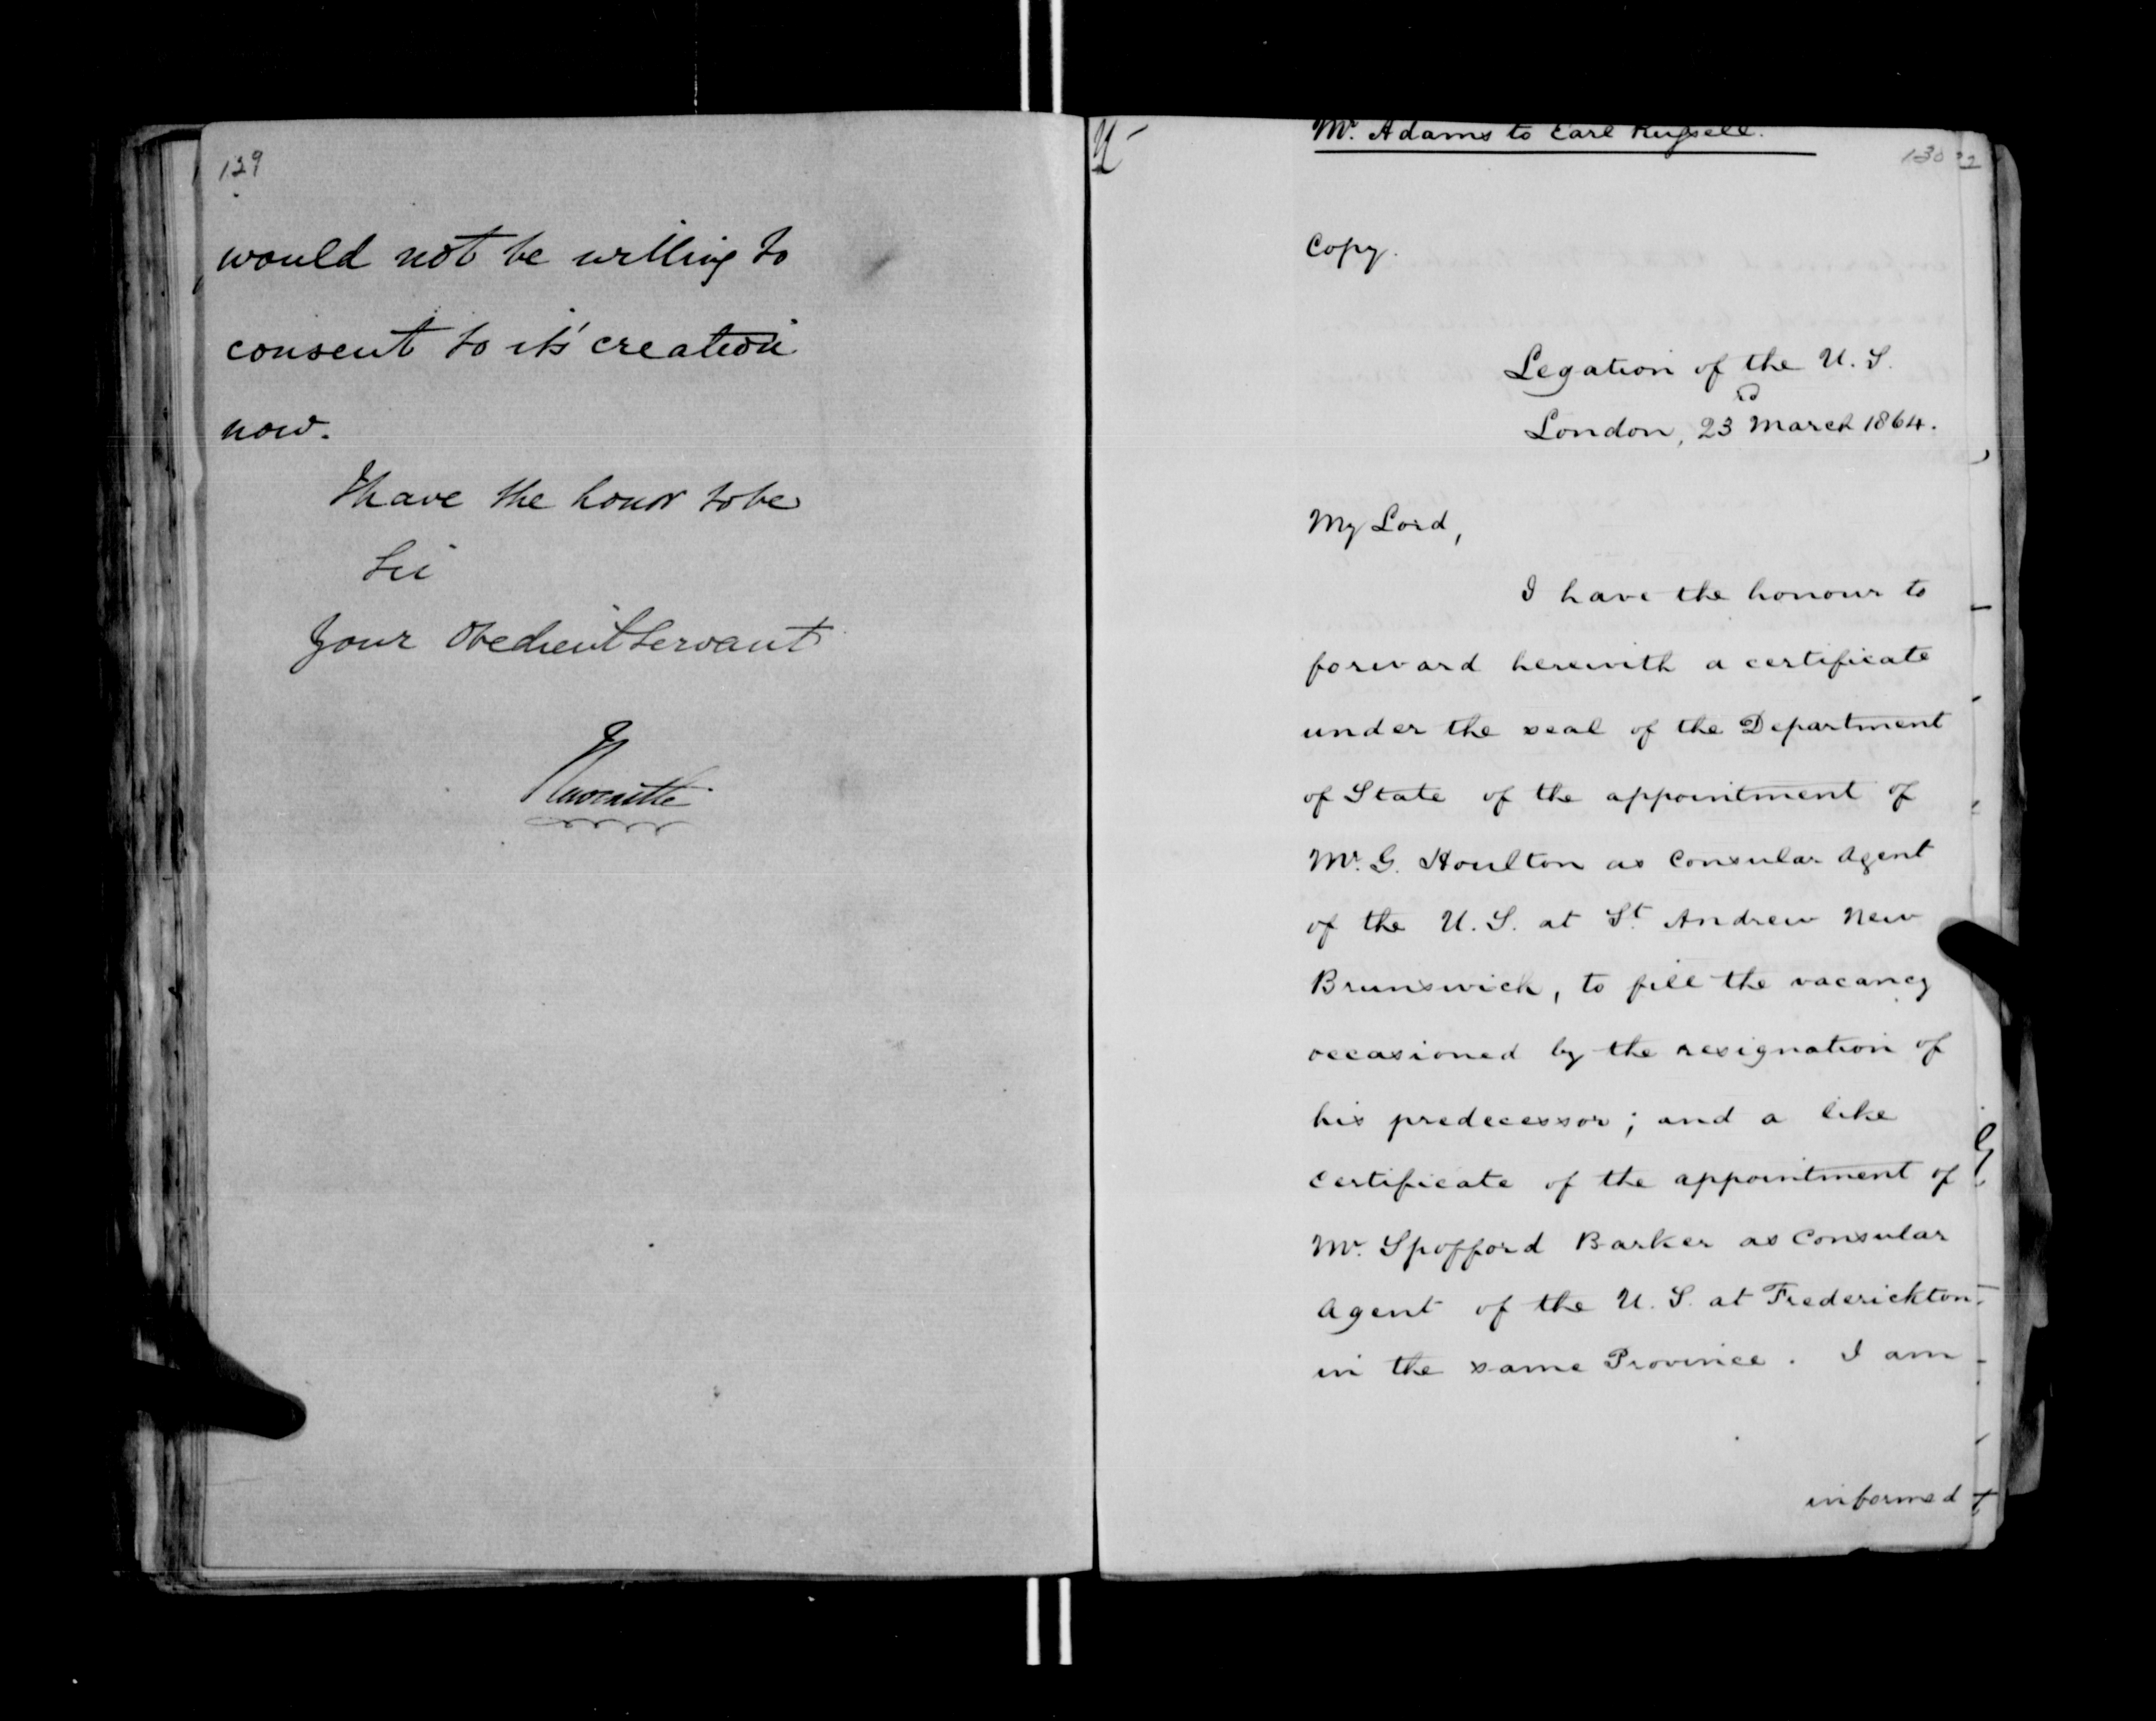 129
would not be willing to
consent to its' creation
now.
I have the honor to be
Sir
Your Obedient Servant
Mr. Adams to Earl Russell.
130
Copy.
Legation of the U. S.
London, 23rd March 1864.
My Lord,
I have the honour to
forward herewith a certificate
under the seal of the Department
of State of the appointment of
Mr. G. Houlton as Consular Agent
of the U. S. at St. Andrew New
Brunswick, to fill the vacancy
occasioned by the resignation of
his predecessor; and a like
certificate of the appointment of
Mr. Spofford Barker as Consular
Agent of the U. S. at Frederickton.
in the same Province. I am
informed